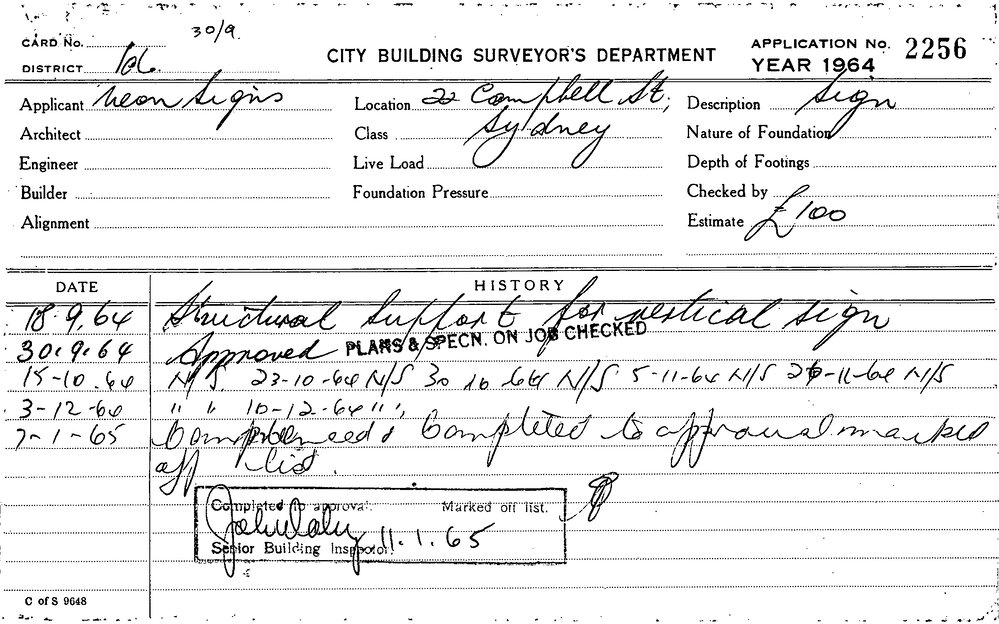 30/9.
CARD No.
CITY BUILDING SURVEYOR'S DEPARTMENT
APPLICATION No. 2256
DISTRICT
YEAR 1964
Applicant Neon Signs Location 22 Campbell St, Description Sign
Architect Class Sydney Nature of Foundation
Engineer Live Load Depth of Footings
Builder Foundation Pressure Checked by
Alignment Estimate £100
DATE HISTORY
18.9.64 Structural Support for vertical sign
30.9.64 Approved PLANS & SPECN. ON JOB CHECKED
15-10.64 N/S 23-10-64 N/S 30 10 64 N/S 5-11-64 N/S 26-11-64 N/S
3-12-64 " " 10-12-64 " "
7-1-65 Completed to approval marked
off list.
Completed to approval. Marked off list.
11.1.65
Senior Building Inspector.
C of S 9648